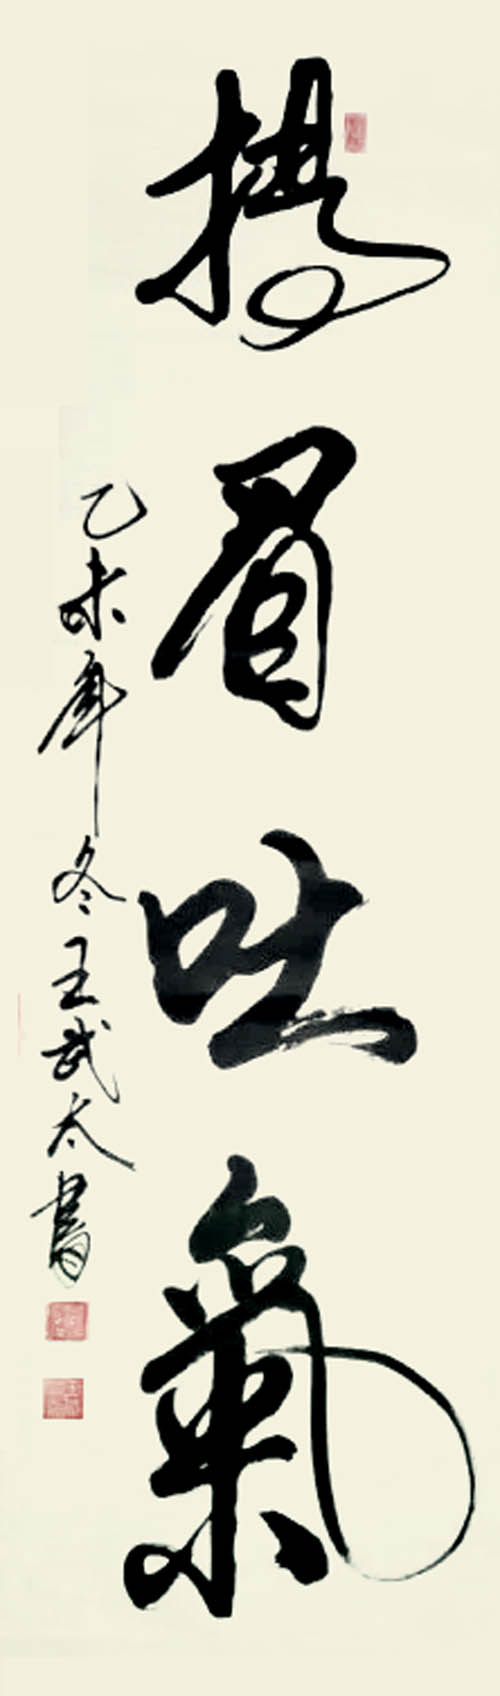 揚眉吐氣
乙未年冬王武太書